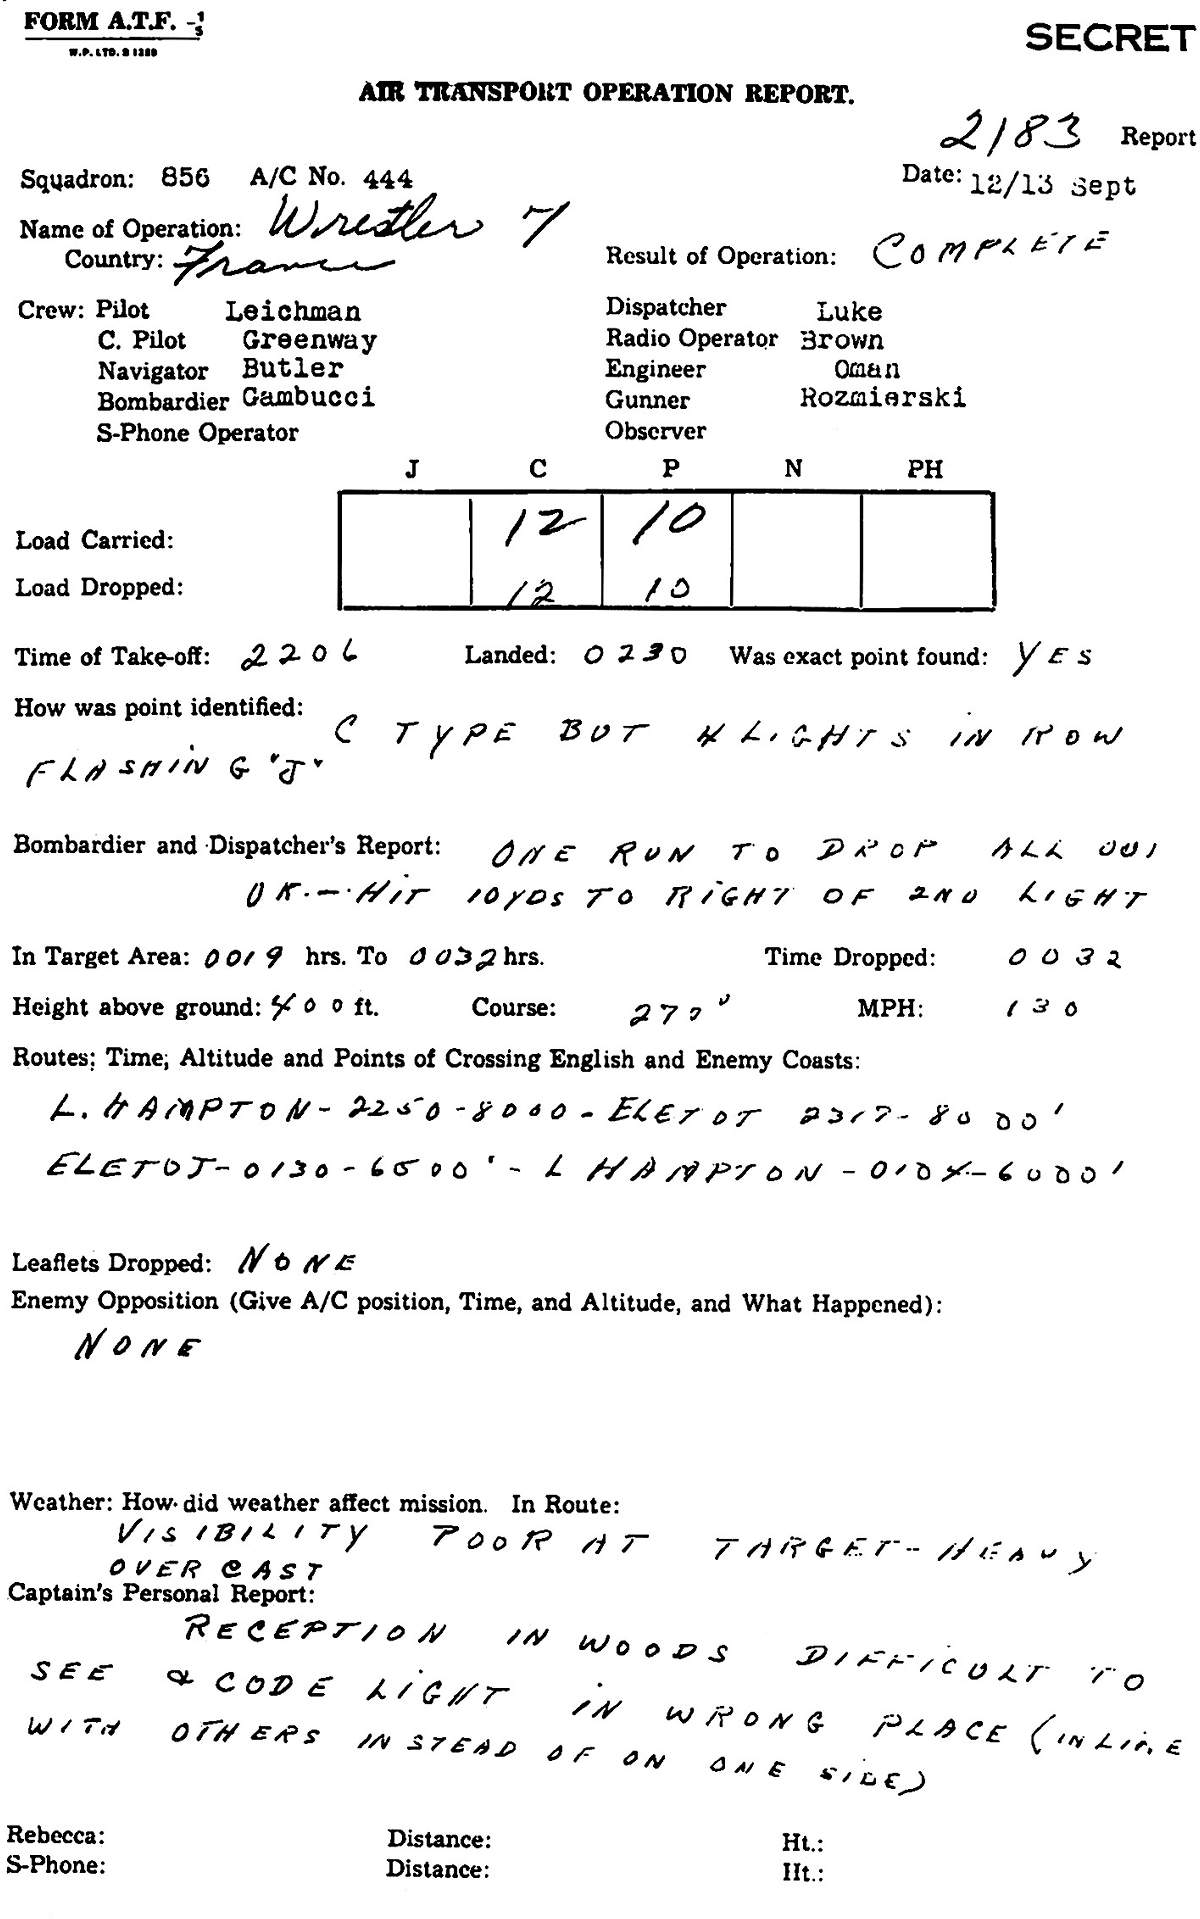 FORM A.T.F. -1/5
SECRET
W.P. LTD. S 1389
AIR TRANSPORT OPERATION REPORT.
2183 Report
Squadron: 856 A/C No. 444 Date: 12/13 Sept
Name of Operation: Wrestler 7
Country: France Result of Operation: COMPLETE
Crew: Pilot Leichman Dispatcher Luke
C. Pilot Greenway Radio Operator Brown
Navigator Butler Engineer Oman
Bombardier Gambucci Gunner Rozmierski
S-Phone Operator Observer
J C P N PH
Load Carried: 12 10
Load Dropped: 12 10
Time of Take-off: 2206 Landed: 0230 Was exact point found: YES
How was point identified: C TYPE BUT 4 LIGHTS IN ROW
FLASHING "J"
Bombardier and Dispatcher's Report: ONE RUN TO DROP ALL OUT
OK.—HIT 10YDS TO RIGHT OF 2ND LIGHT
In Target Area: 0019 hrs. To 0032 hrs. Time Dropped: 0032
Height above ground: 400 ft. Course: 270° MPH: 130
Routes; Time; Altitude and Points of Crossing English and Enemy Coasts:
L. HAMPTON-2250-8000-ELETOT 2317-8000'
ELETOT-0130-6500'-L HAMPTON-0104-6000'
Leaflets Dropped: NONE
Enemy Opposition (Give A/C position, Time, and Altitude, and What Happened):
NONE
Weather: How did weather affect mission. In Route:
VISIBILITY POOR AT TARGET-HEAVY
OVERCAST
Captain's Personal Report:
RECEPTION IN WOODS DIFFICULT TO
SEE & CODE LIGHT IN WRONG PLACE (IN LINE
WITH OTHERS INSTEAD OF ON ONE SIDE)
Rebecca: Distance: Ht.:
S-Phone: Distance: Ht.: